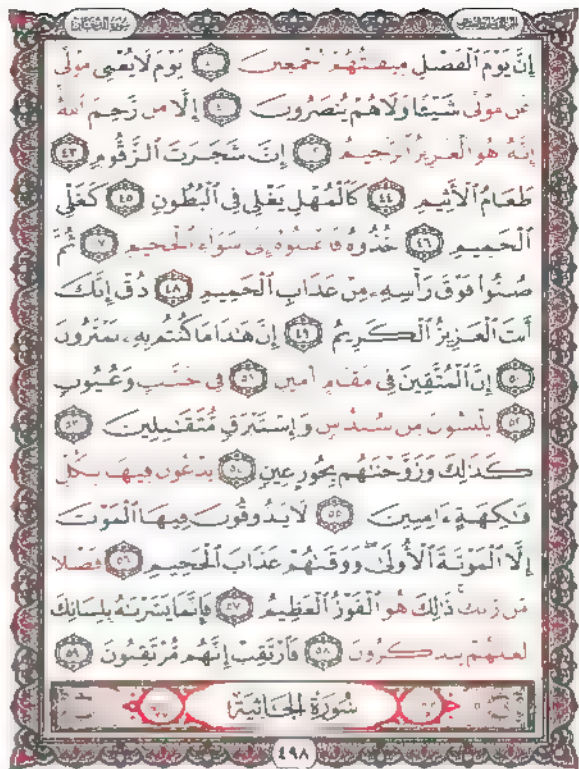 سورة الدخان
إِنَّ يَوْمَ ٱلْفَصْلِ مِيقَـٰتُهُمْ أَجْمَعِينَ ٤٠ يَوْمَ لَا يُغْنِى مَوْلًى
عَن مَّوْلًى شَيْـًٔا وَلَا هُمْ يُنصَرُونَ ٤١ إِلَّا مَن رَّحِمَ ٱللَّهُ
إِنَّهُۥ هُوَ ٱلْعَزِيزُ ٱلرَّحِيمُ ٤٢ إِنَّ شَجَرَتَ ٱلزَّقُّومِ ٤٣
طَعَامُ ٱلْأَثِيمِ ٤٤ كَٱلْمُهْلِ يَغْلِى فِى ٱلْبُطُونِ ٤٥ كَغَلْىِ
ٱلْحَمِيمِ ٤٦ خُذُوهُ فَٱعْتِلُوهُ إِلَىٰ سَوَآءِ ٱلْجَحِيمِ ٤٧ ثُمَّ
صُبُّوا۟ فَوْقَ رَأْسِهِۦ مِنْ عَذَابِ ٱلْحَمِيمِ ٤٨ ذُقْ إِنَّكَ
أَنتَ ٱلْعَزِيزُ ٱلْكَرِيمُ ٤٩ إِنَّ هَـٰذَا مَا كُنتُم بِهِۦ تَمْتَرُونَ
٥٠ إِنَّ ٱلْمُتَّقِينَ فِى مَقَامٍ أَمِينٍ ٥١ فِى جَنَّـٰتٍ وَعُيُونٍ
٥٢ يَلْبَسُونَ مِن سُندُسٍ وَإِسْتَبْرَقٍ مُّتَقَـٰبِلِينَ ٥٣
كَذَٰلِكَ وَزَوَّجْنَـٰهُم بِحُورٍ عِينٍ ٥٤ يَدْعُونَ فِيهَا بِكُلِّ
فَـٰكِهَةٍ ءَامِنِينَ ٥٥ لَا يَذُوقُونَ فِيهَا ٱلْمَوْتَ
إِلَّا ٱلْمَوْتَةَ ٱلْأُولَىٰ ۖ وَوَقَىٰهُمْ عَذَابَ ٱلْجَحِيمِ ٥٦ فَضْلًا
مِّن رَّبِّكَ ۚ ذَٰلِكَ هُوَ ٱلْفَوْزُ ٱلْعَظِيمُ ٥٧ فَإِنَّمَا يَسَّرْنَـٰهُ بِلِسَانِكَ
لَعَلَّهُمْ يَتَذَكَّرُونَ ٥٨ فَٱرْتَقِبْ إِنَّهُم مُّرْتَقِبُونَ ٥٩
سُورَةُ الْجَاثِيَةِ
٤٩٨